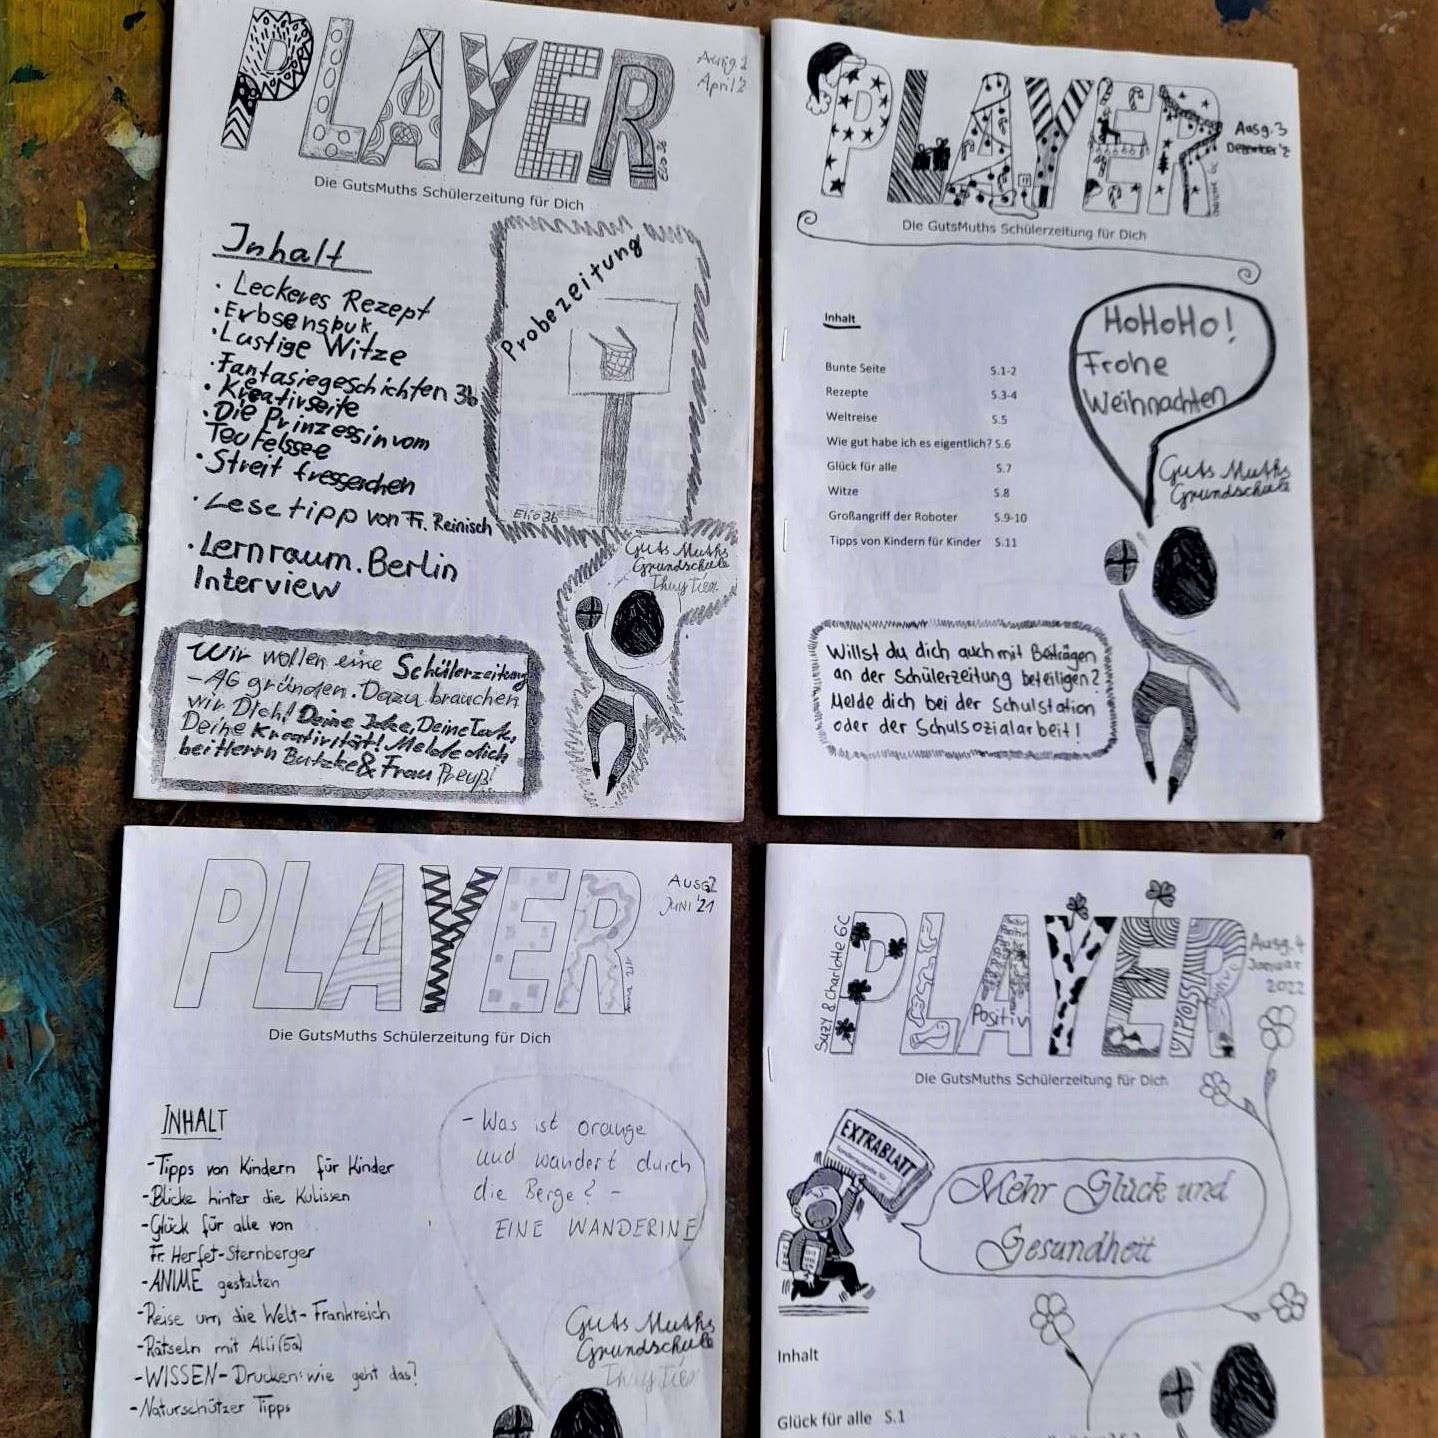 PLAYER
Ausg. 1
April 2
Elio 3b
Die GutsMuths Schülerzeitung für Dich
Inhalt
· Leckeres Rezept
· Erbsenspuk
· Lustige Witze
· Fantasiegeschichten 3b
· Kreativseite
· Die Prinzessin vom
Teufelssee
· Streit fresserchen
· Lesetipp von Fr. Reinisch
· Lernraum.Berlin
Interview
Probezeitung
Elio 3b
Guts Muths
Grundschule
Thuy Tien
Wir wollen eine Schülerzeitung
-AG gründen. Dazu brauchen
wir Dich! Deine Idee, Deine Texte,
Deine Kreativität! Melde dich
bei Herrn Butzke & Frau Preuß!
PLAYER
Ausg. 3
Dezember '2
Die GutsMuths Schülerzeitung für Dich
Inhalt
Bunte Seite S.1-2
Rezepte S.3-4
Weltreise S.5
Wie gut habe ich es eigentlich? S.6
Glück für alle S.7
Witze S.8
Großangriff der Roboter S.9-10
Tipps von Kindern für Kinder S.11
HoHoHo!
Frohe
Weihnachten
Guts Muths
Grundschule
Willst du dich auch mit Beiträgen
an der Schülerzeitung beteiligen?
Melde dich bei der Schulstation
oder der Schulsozialarbeit!
PLAYER
AUSG 2
JUNI '21
Die GutsMuths Schülerzeitung für Dich
INHALT
-Tipps von Kindern für Kinder
-Blicke hinter die Kulissen
-Glück für alle von
Fr. Herfet-Sternberger
-ANIME gestalten
-Reise um die Welt-Frankreich
-Rätseln mit Alli (5a)
-WISSEN-Drucken: wie geht das?
-Naturschützer Tipps
- Was ist orange
und wandert durch
die Berge? -
EINE WANDERINE
Guts Muths
Grundschule
Thuy Tien
Suzy & Charlotte 6C
PLAYER
Positiv
Ausg. 4
Januar
2022
Die GutsMuths Schülerzeitung für Dich
EXTRABLATT
Mehr Glück und
Gesundheit
Inhalt
Glück für alle S.1